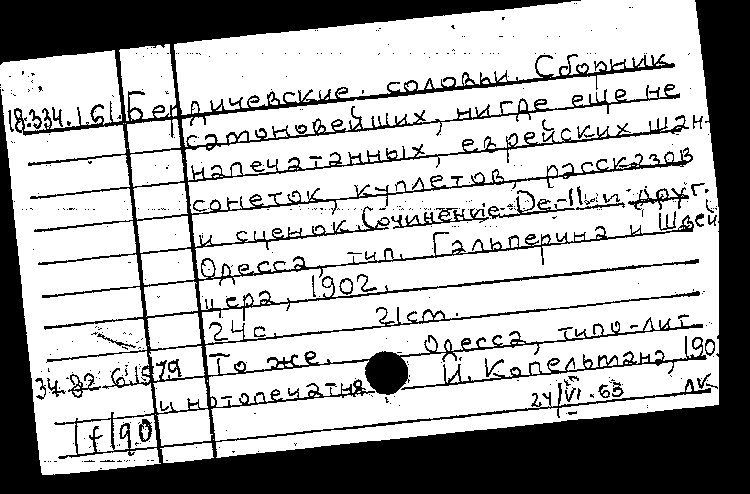 18.334.1.61. Бердичевские соловьи. Сборник
самоновейших, нигде еще не
напечатанных, еврейских шан-
сонеток, куплетов, рассказов
и сценок. Сочинение Der-Ilu и друг.
Одесса, тип. Гальперина и Швей
цера, 1902.
24с. 21cm.
34.82.6.1579 То же. Одесса, типо-лит.
и нотопечатня И. Копельмана, 190
1f/90 24/VI.53 ЛК